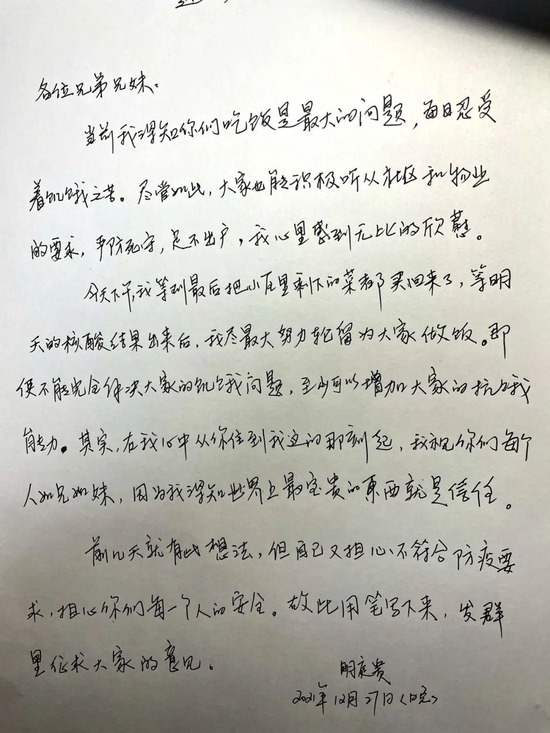 各位兄弟兄妹:
当前我得知你们吃饭是最大的问题,每日忍受
着饥饿之苦。尽管如此,大家也能积极听从社区和物业
的要求,严防死守,足不出户,我心里感到无比的欣慰。
今天下午,我等到最后把小店里剩下的菜都买回来了,等明
天的核酸结果出来后,我尽最大努力轮留为大家做饭。即
使不能完全解决大家的饥饿问题,至少可以增加大家的抗饿
能力。其实,在我心中从你住到我这的那刻起,我视你们每个
人如兄如妹,因为我得知世界上最宝贵的東西就是信任。
前几天就有此想法,但自己又担心不符合防疫要
求,担心你们每一个人的安全。故此用笔写下来,发群
里征求大家的意见。
明庭贵
2021年12月27日(晚)